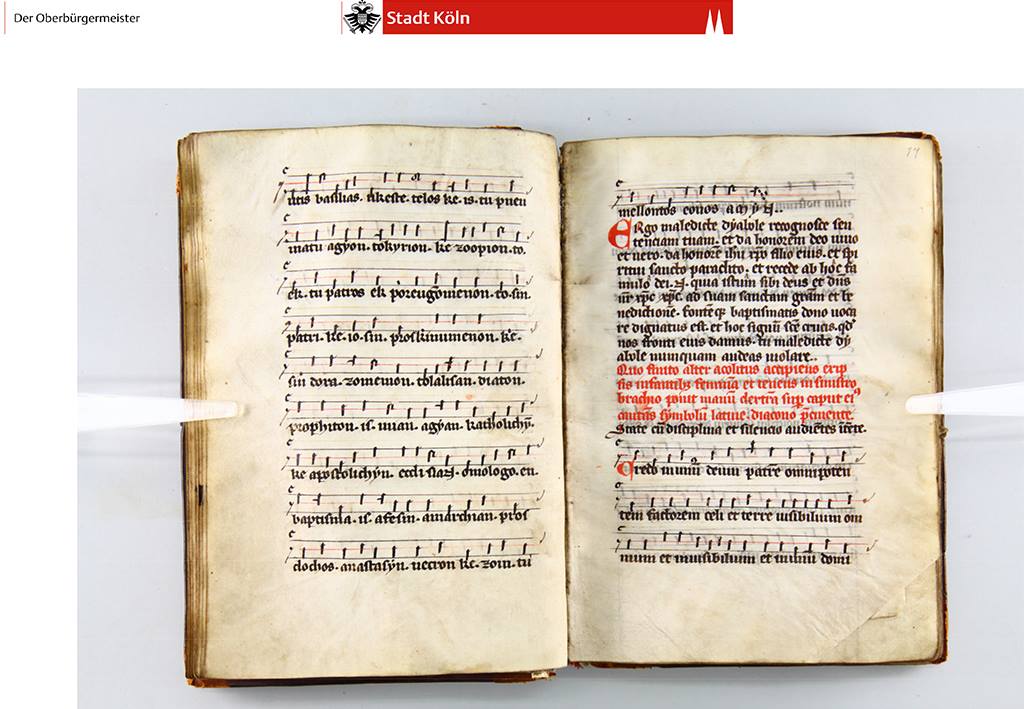 Der Oberbürgermeister
Stadt Köln
utis basilias. ukeste. telos ke. is. tu pneu
matu agyon. tokyrion. ke zoopion. to.
ek. tu patros ek poreugomenon. to. sin.
patri. ke. io. sin. proskinumenon. ke.
sin dora. zomenon. to lalisan. diaton.
prophiton. is. mian. agyan. katholichyn.
ke apostolichyn. ecclisian. omologo. en.
baptisma. is. afesin. amarthian. pros
dochos. anastasyn. necron ke. zoin. tu
17
mellontos eonos amyn..
Ergo maledicte dyabole recognosce sen
tenciam tuam. et da honorem deo vivo
et vero. da honore ihu xpo filio eius. et spi
ritui sancto paraclito. et recede ab hoc fa
mulo dei. N. quia istum sibi deus et dns
nr ihc xpc. ad suam sanctam gram et be
nedictione. fonteq baptismatis dono voca
re dignatus est. et hoc signu sce crucis. qd
nos fronti eius damus. tu maledicte dy
abole numquam audeas violare..
Quo finito alter acolitus accipiens
infantibus femina et tenens in sinistro
brachio ponit manu dextra sup caput
symbolu latine. diacono
State cu disciplina et silencio audientes
Credo in unu deum patre omnipoten
tem factorem celi et terre visibilium om
nium et invisibilium et in unu domi